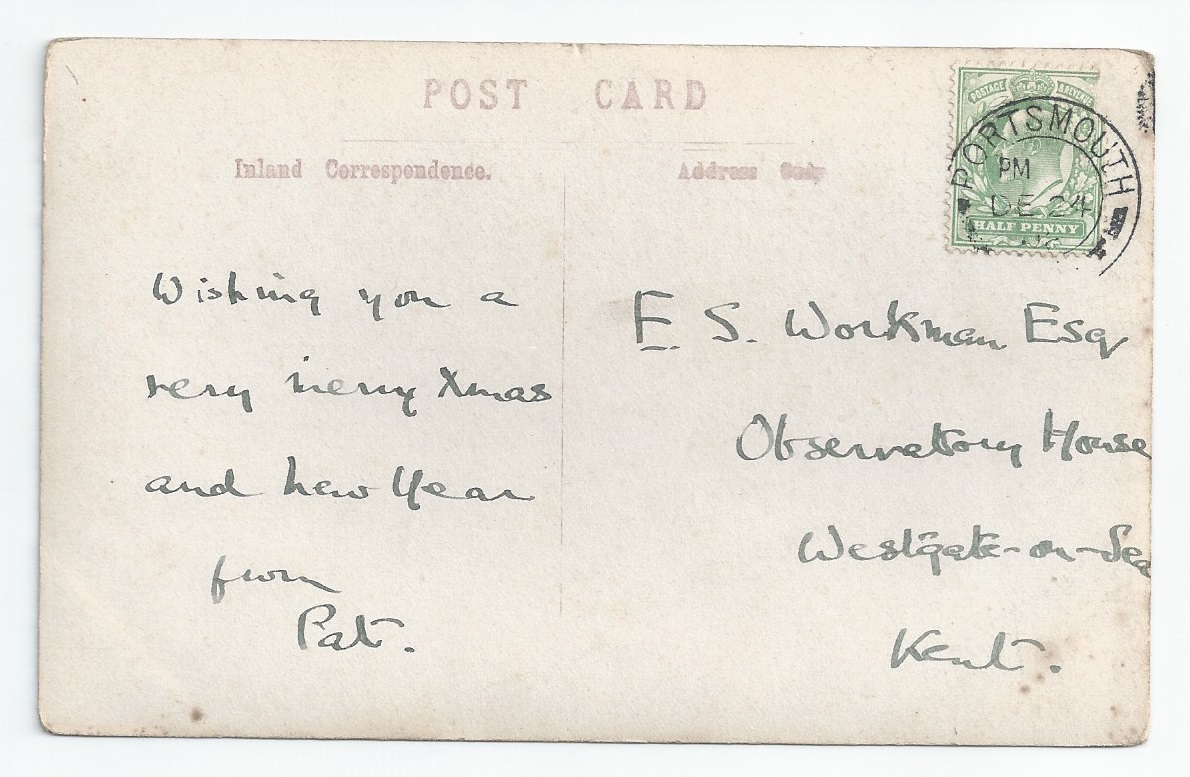 POST CARD
Inland Correspondence.
Address Only
POSTAGE & REVENUE
PORTSMOUTH
PM
DE 24
HALF PENNY
Wishing you a
very merry Xmas
and New Year
from
Pat.
E. S. Workman Esq
Observatory House
Westgate-on-Sea
Kent.